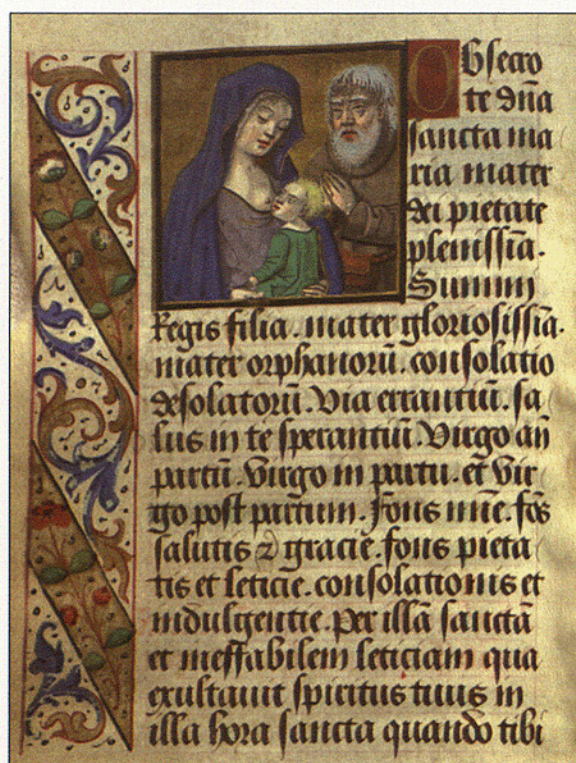 Obsecro
te dn̄a
sancta ma
ria mater
dei pietate
plenissīa.
Summi
Regis filia. mater gloriosissīa.
mater orphanorū. consolatio
desolatorū. Via errantiū. sa
lus in te sperantiū. Virgo an̄
partū. Virgo in partu. et Vir
go post partum. Fons mīe. fōs
salutis ⁊ gracie. fons pieta
tis et leticie. consolationis et
indulgentie. Per illā sanctā
et ineffabilem leticiam qua
exultauit spiritus tuus in
illa hora sancta quando tibi